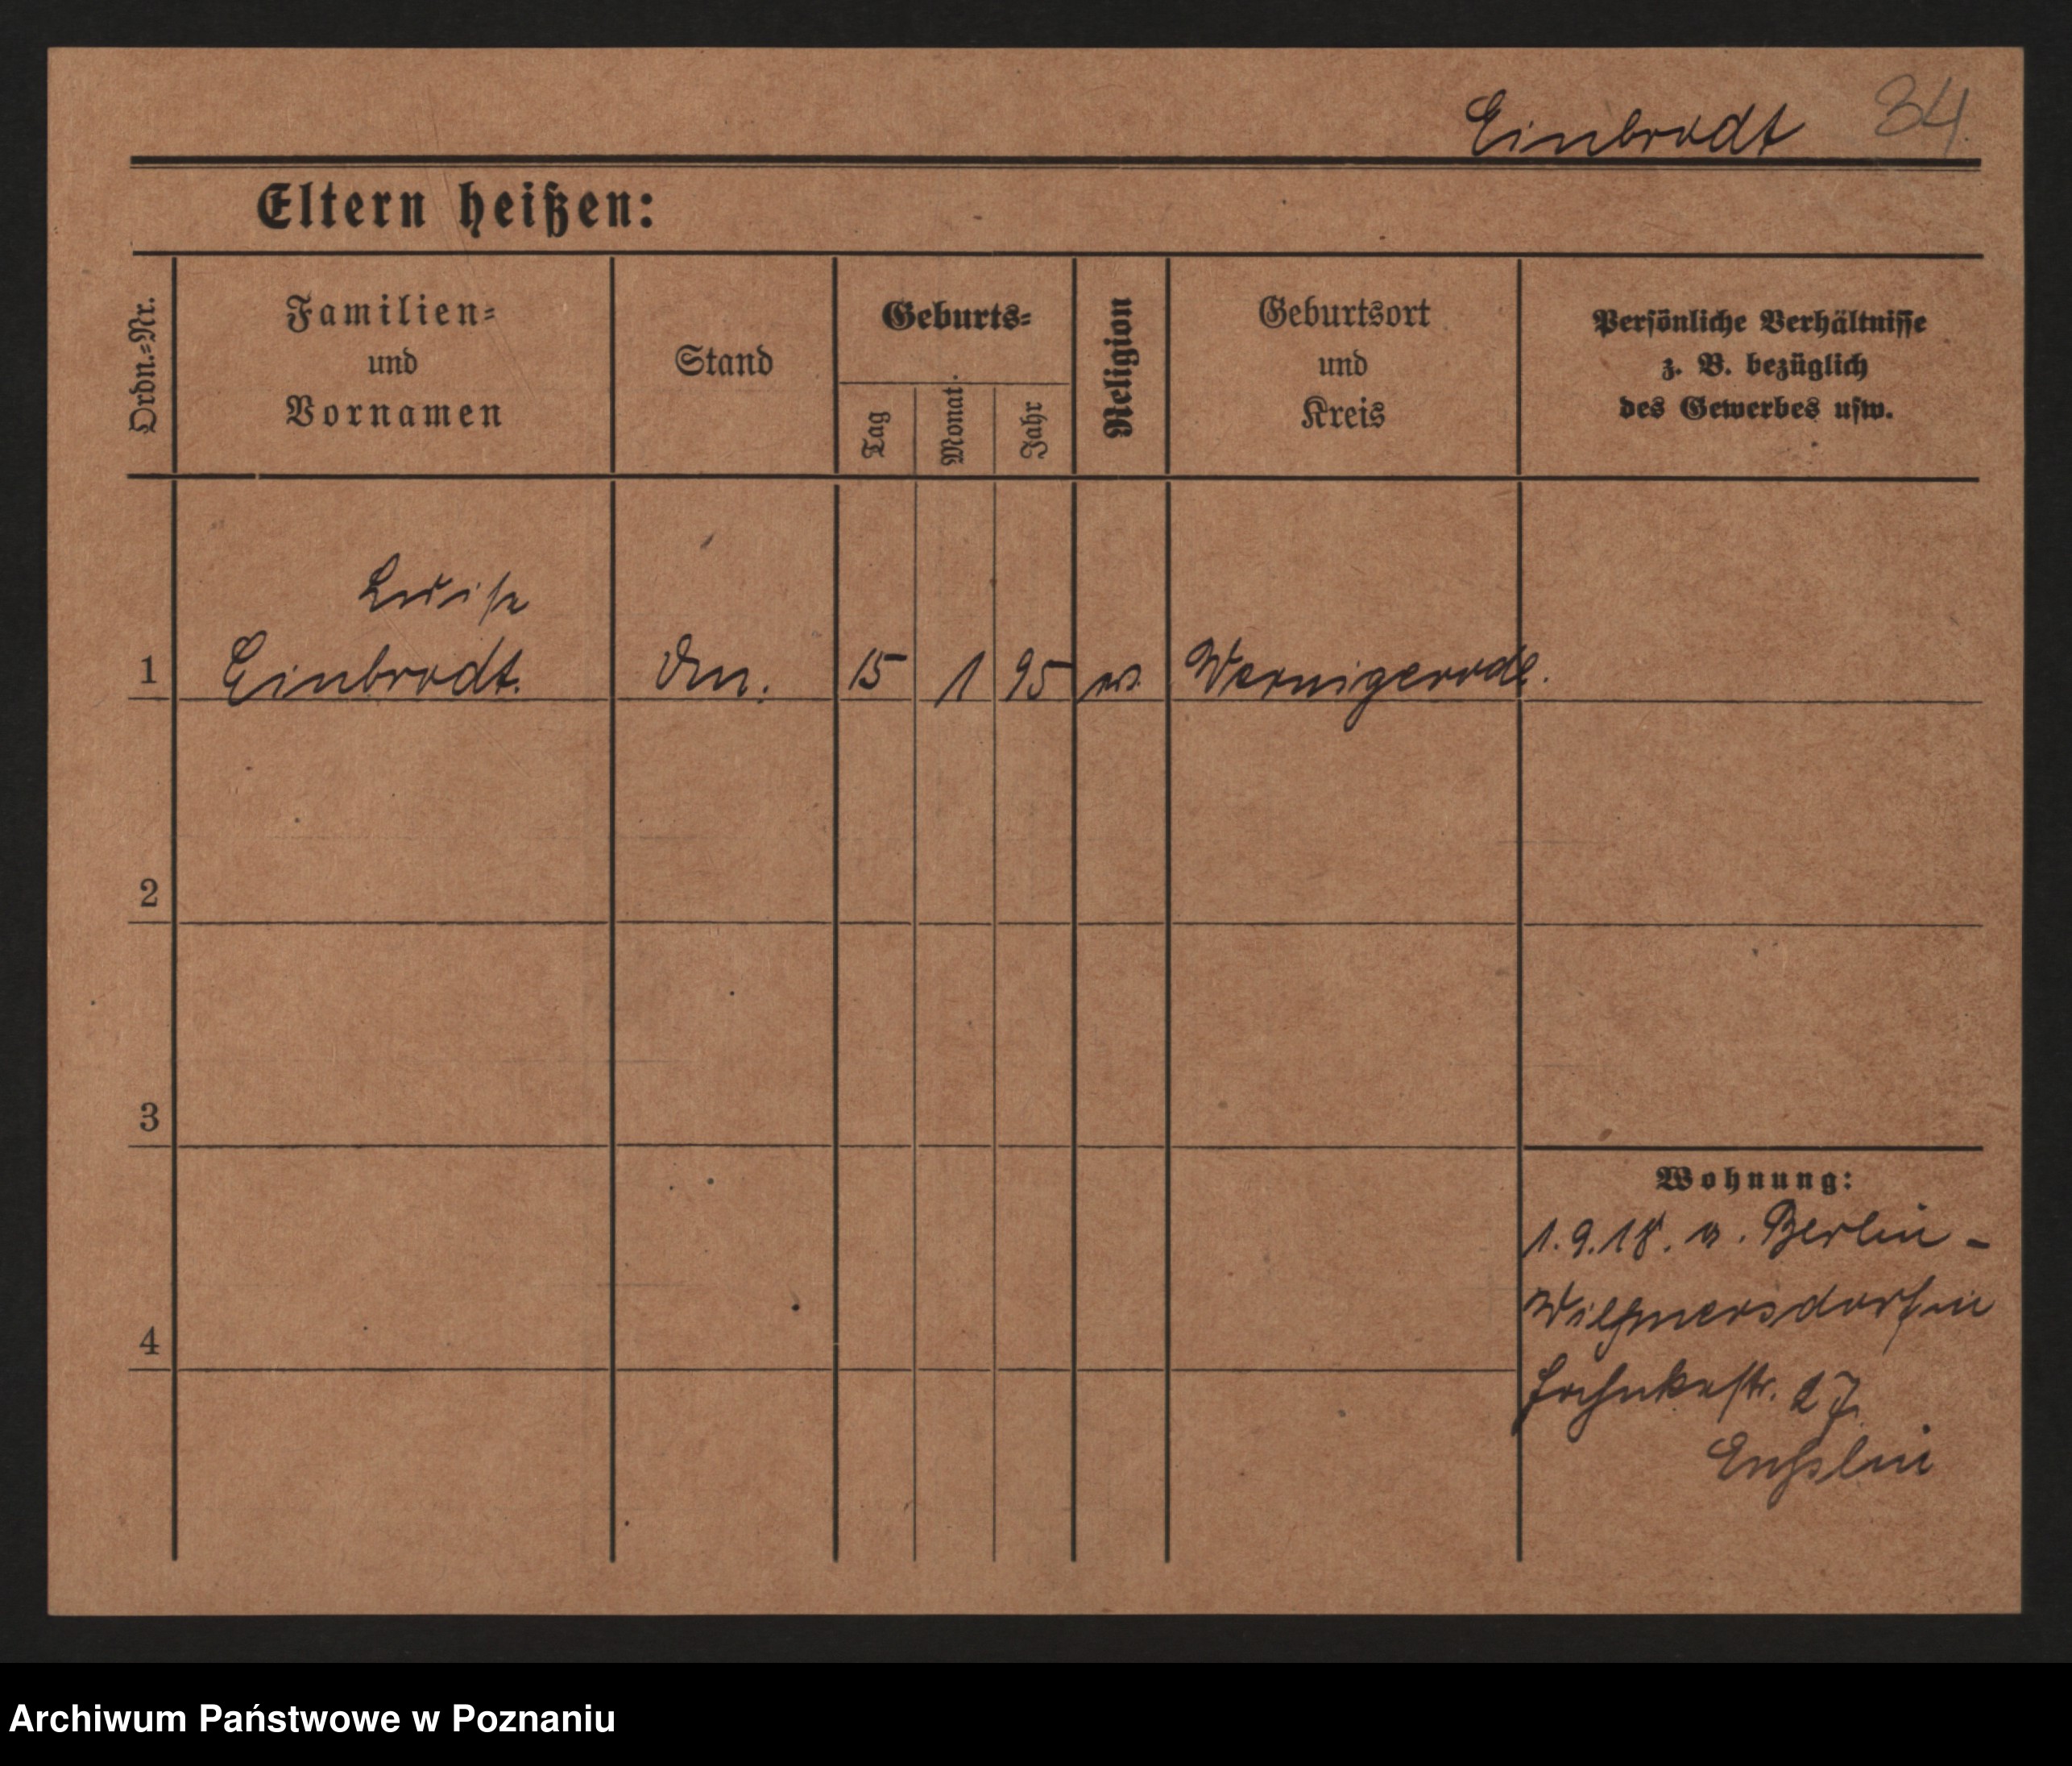 Einbrodt 34.
Eltern heißen:
Ordn.=Nr.
Familien=
und
Vornamen
Stand
Geburts=
Tag
Monat
Jahr
Religion
Geburtsort
und
Kreis
Persönliche Verhältnisse
z. B. bezüglich
des Gewerbes usw.
Luise
1 Einbrodt. 15 1 95 ev. Wernigerode.
2
3
Wohnung:
1.9.18. n. Berlin -
4
27
Archiwum Państwowe w Poznaniu